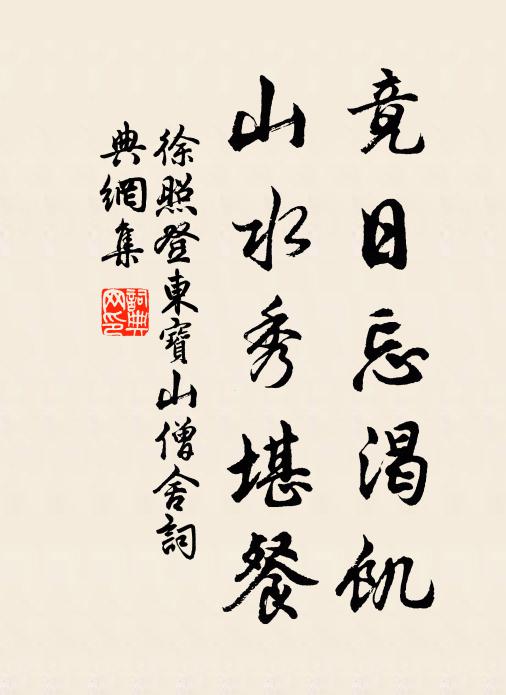 竟日忘渴飢
山水秀堪餐
徐照登東寶山僧舍詞
典網集
詞典網印